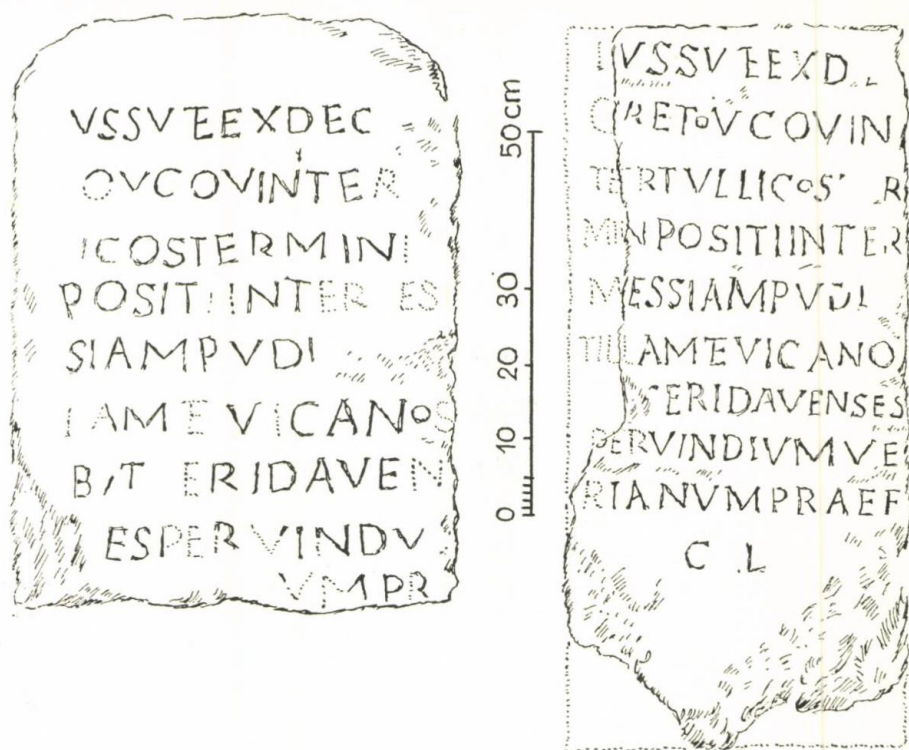 VSSVTEEXDEC
OVCOVINTER
ICOSTERMINI
POSITIINTER ES
SIAMPVDI
IAMEVICANOS
BIT ERIDAVEN
ESPERVINDV
VMPR
50 cm
30
20
10
0
IVSSVTEEXD
CRETOVCOVIN
TERTVLLICOS R
MINPOSITIINTER
MESSIAMPVDI
TILLAMEVICANO
ERIDAVENSES
PERVINDIVMVE
RIANVMPRAEF
C L